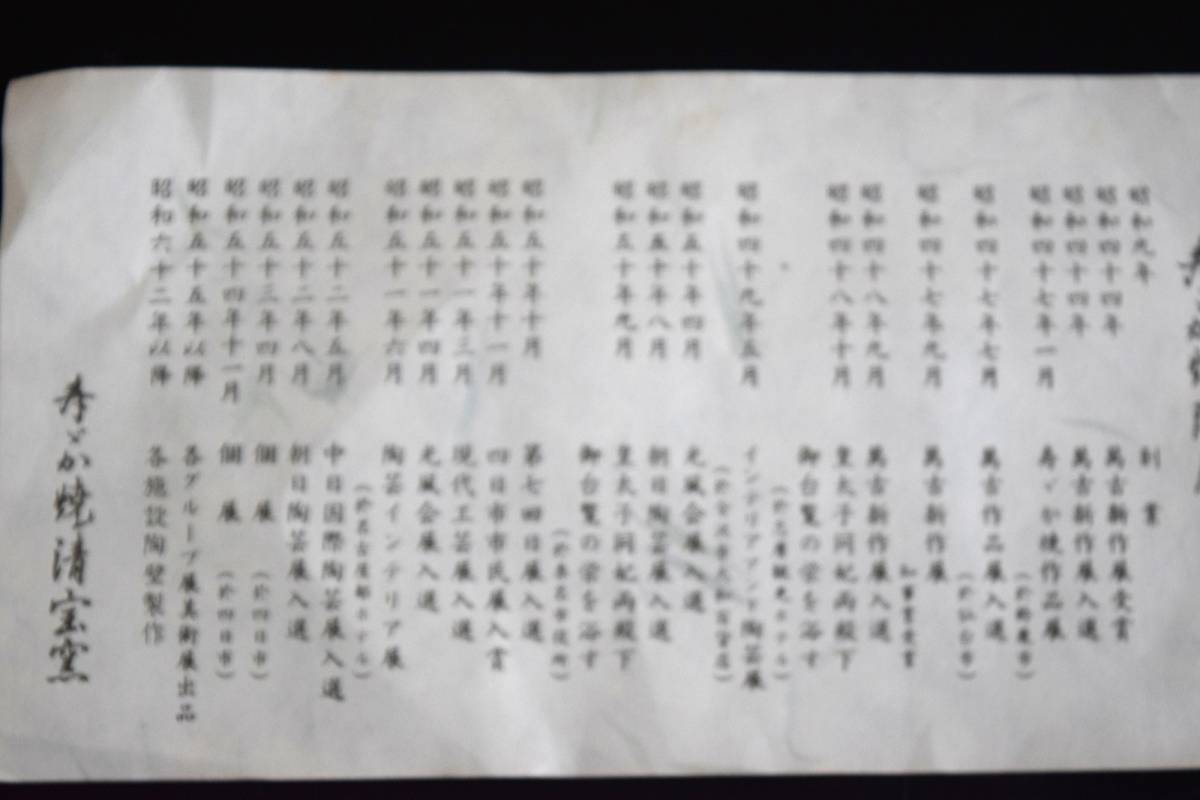 昭和九年 創業
昭和四十四年 萬古新作展受賞
昭和四十四年 萬古新作展入選
昭和四十七年一月 寿ゞか焼作品展
(於鈴鹿市)
昭和四十七年七月 萬古作品展入選
(於仙台市)
昭和四十七年九月 萬古新作展
知事賞受賞
昭和四十八年九月 萬古新作展入選
昭和四十八年十月 皇太子同妃両殿下
御台覧の栄を浴す
昭和四十九年五月 インテリアアンド陶芸展
昭和五十年四月 光風会展入選
昭和五十年八月 朝日陶芸展入選
昭和五十年九月 皇太子同妃両殿下
御台覧の栄を浴す
昭和五十年十月 第七回日展入選
昭和五十年十一月 四日市市民展入賞
昭和五十一年三月 現代工芸展入選
昭和五十一年四月 光風会展入選
昭和五十一年六月 陶芸インテリア展
(於名古屋都ホテル)
昭和五十二年五月 中日国際陶芸展入選
昭和五十二年八月 朝日陶芸展入選
昭和五十三年四月 個展 (於四日市)
昭和五十四年十一月 個展 (於四日市)
昭和五十五年以降 各グループ展美術展出品
昭和六十二年以降 各施設陶壁製作
寿ゞか焼清宝窯